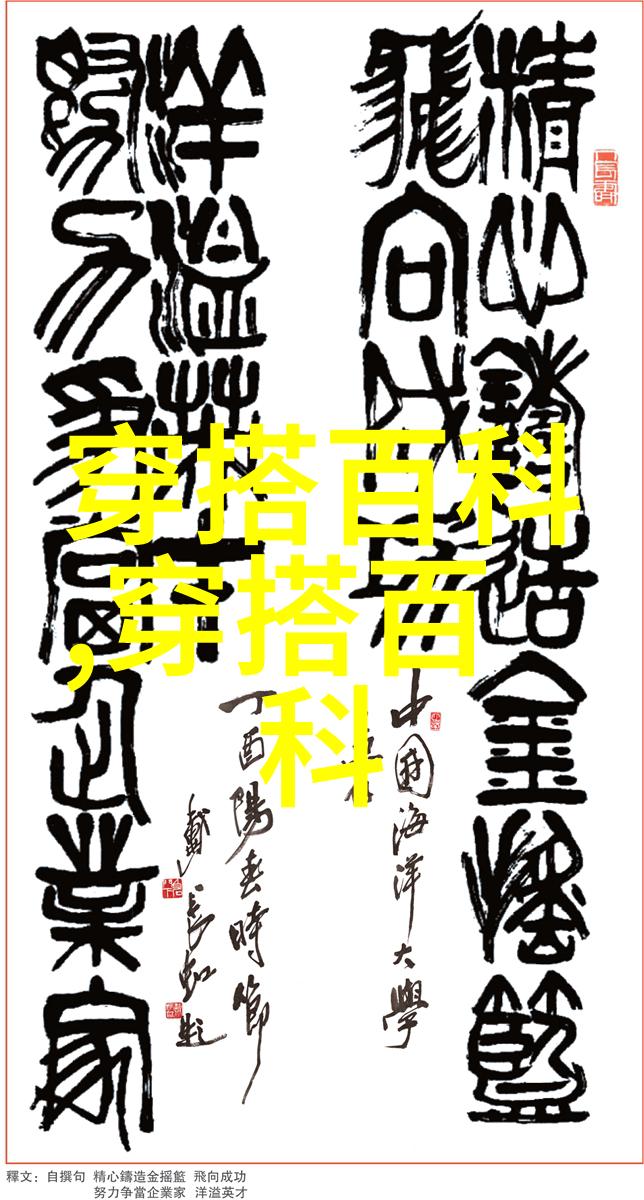 精心鑄造金摇籃
飛向成功
中國海洋大學
洋溢英才
丁酉陽春時節
努力爭當企業家
戴長虹題
穿搭百科
,穿搭百
科
釋文：自撰句 精心鑄造金摇籃 飛向成功
努力争當企業家 洋溢英才